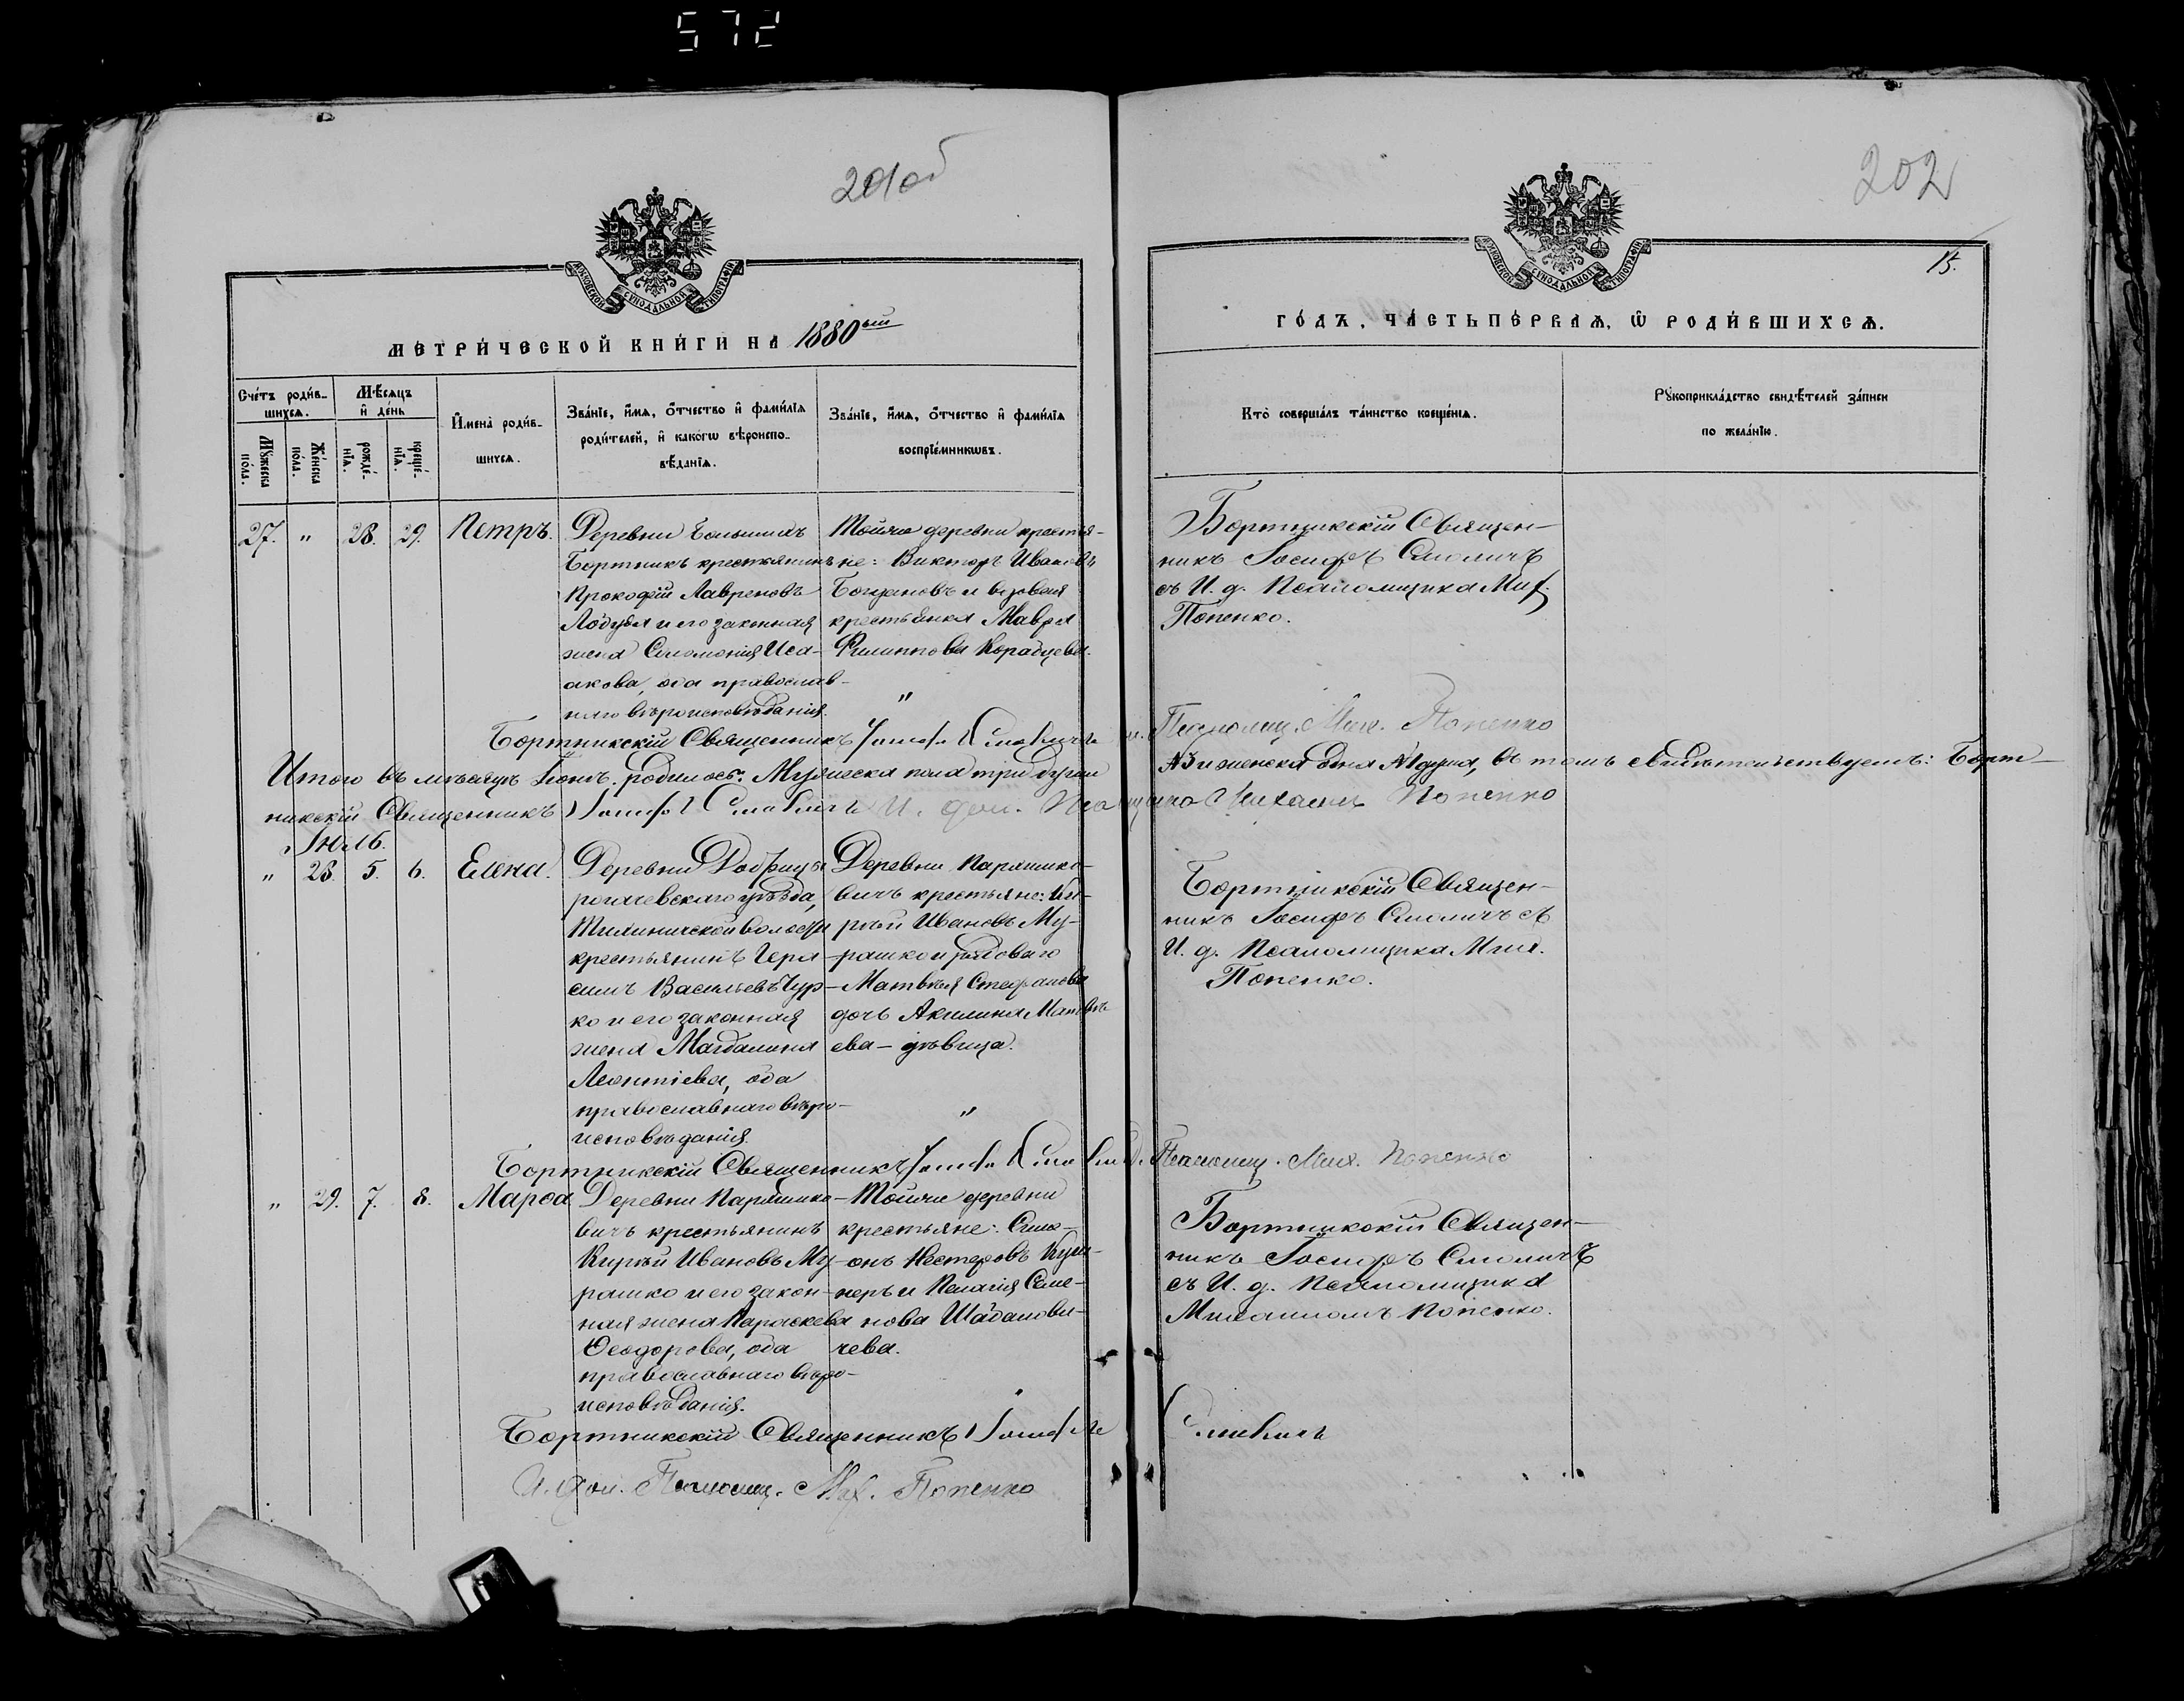 572
201об
202
15.
МОСКОВСКОЙ СΥНОДАЛЬНОЙ ТИПОГРАФІИ
МОСКОВСКОЙ СΥНОДАЛЬНОЙ ТИПОГРАФІИ
МЕТРИ́ЧЕСКОЙ КНИ́ГИ НА 1880ый
ГО́ДЪ, ЧА́СТЬ ПЕ́РВАѦ, Ѡ҆ РОДИ́ВШИХСѦ.
Сче́тъ роди́в-
шихсѧ.
Мѣ́сяцъ
и҆ де́нь
Мꙋ́жеска
по́ла.
Же́нска
по́ла.
рожде́-
нїѧ.
креще́-
нїѧ.
И҆мена̀ роди́в-
шихсѧ.
Зва́нїе, и҆́мѧ, ѻ҆́тчество и҆ фами́лїѧ
роди́телей, и҆ како́гѡ вѣроиспо-
вѣ́данїѧ.
Зва́нїе, и҆́мѧ, ѻ҆́тчество и҆ фами́лїѧ
воспрїе́мникѡвъ.
Кто̀ соверша́лъ та́инство креще́нїѧ.
Рꙋкоприкла́дство свидѣ́телей за́писи
по жела́нїю.
27. " 28. 29. Петръ.
Деревни Большихъ
Бортникъ крестьянинъ
Прокофій Лавреновъ
Лобуза и его законная
жена Соломонія Иса-
акова, оба православ-
наго вѣроисповѣданія.
Тойже деревни крестья-
не: Викторъ Ивановъ
Богдановъ и вдовая
крестьянка Мавра
Филиппова Корабцева.
"
Бортникскій Священ-
никъ Іосифъ Смоличъ
съ И. д. Псаломщика Мих.
Попенко.
Бортникскій Священникъ Іосифъ Смоличъ и. Псаломщ. Мих. Попенко
Итого въ мѣсяцѣ Іюнѣ родилось: Мужеска пола три души
А женска одна душа, въ томъ свидѣтельствуемъ: Борт-
никскій Священникъ Іосифъ Смоличъ И. дол. Псаломщика Михаилъ Попенко
Іюль.
" 28. 5. 6. Елена.
Деревни Добрицы
рогачевскаго уѣзда,
крестьянинъ Гера-
симъ Васильевъ Чур-
ко и его законная
жена Магдалина
Леонтіева, оба
православнаго вѣро-
исповѣданія.
Деревни Парашко-
вичъ крестьяне: Ки-
рѣй Ивановъ Му-
рашко и рядоваго
Матвѣя Стефанова
дочь Акилина Матвѣ-
ева – дѣвица.
"
Бортникскій Священ-
никъ Іосифъ Смоличъ съ
И. д. Псаломщика Мих.
Попенко.
Бортникскій Священникъ Іосифъ Смоличъ. Псаломщ. Мих. Попенко
" 29. 7. 8. Марѳа.
Деревни Парашко-
вичъ крестьянинъ
Кирѣй Ивановъ Му-
рашко и его закон-
ная жена Параскева
Ѳеодорова, оба
православнаго вѣро-
исповѣданія.
Тойже деревни
крестьяне: Сим-
онъ Нестеровъ Куш-
неръ и Пелагія Симе-
нова Шабанови-
чева.
"
Бортникскій Священ-
никъ Іосифъ Смоличъ
съ И. д. Псаломщика
Михаиломъ Попенко.
Бортникскій Священникъ Іосифъ Смоличъ
И. дол. Псаломщ. Мих. Попенко